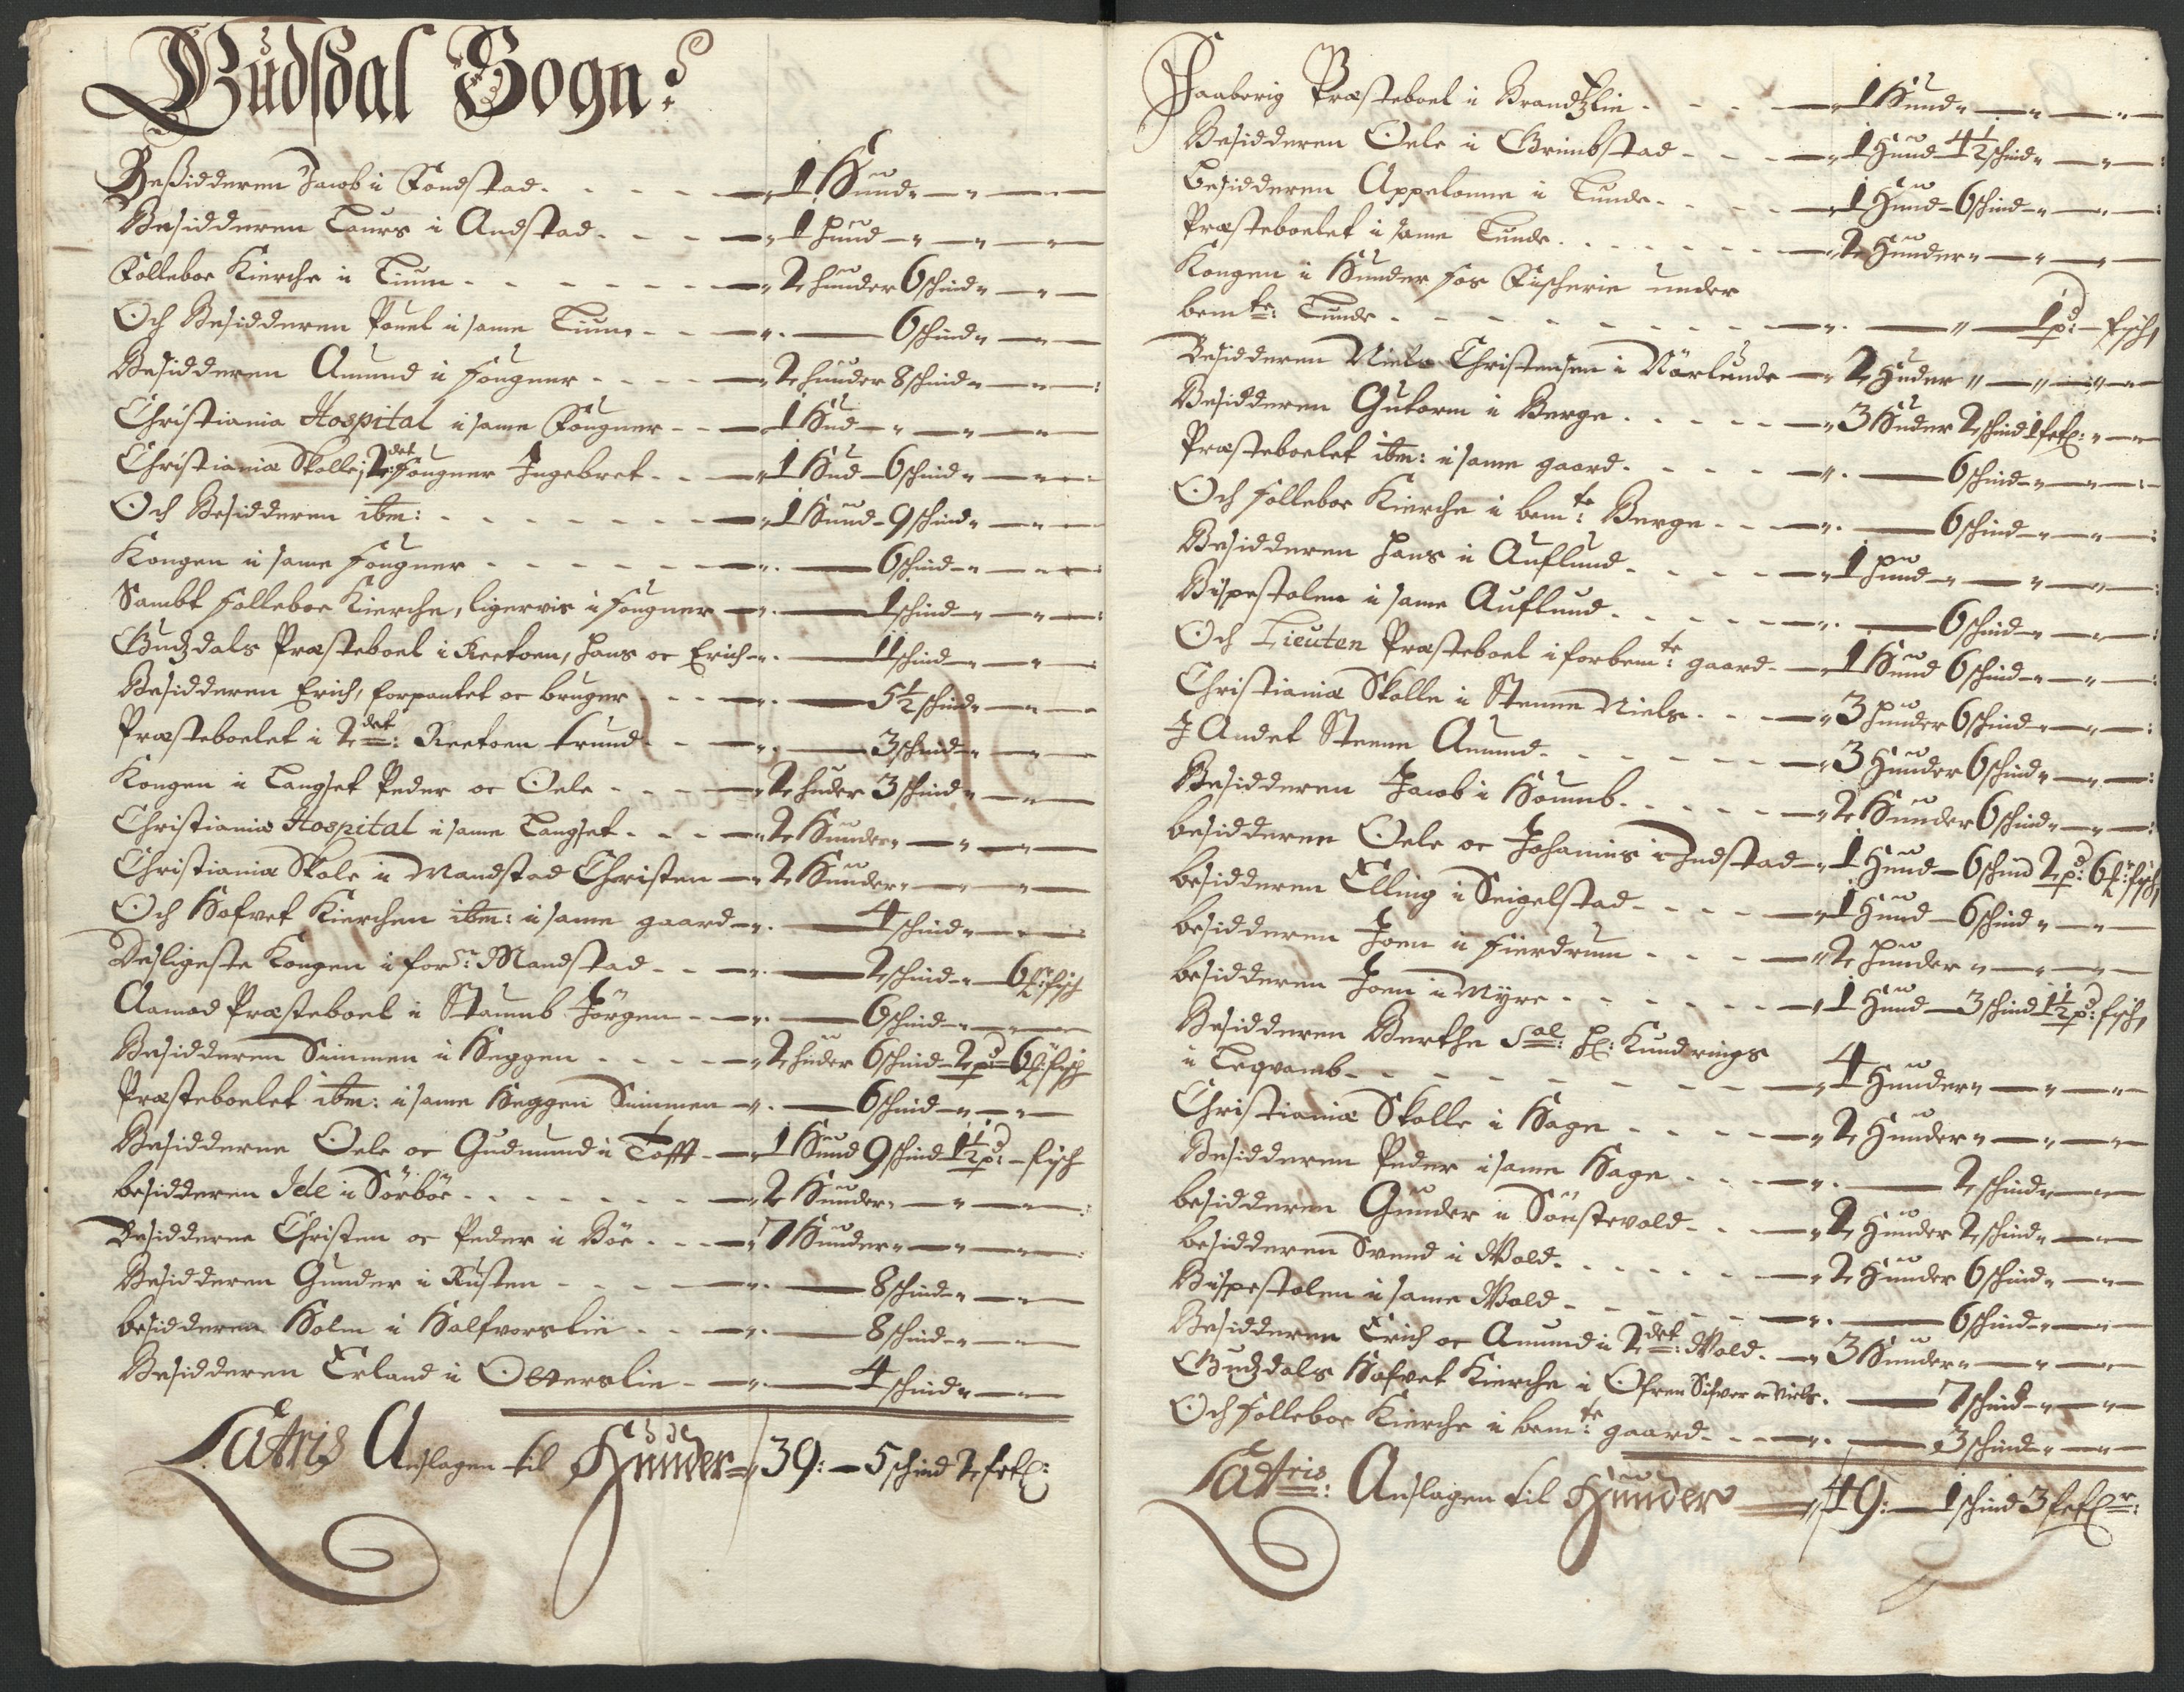 Gudsdal Sogn:
Beßidderen Jacob i Fondstad - - - - 1 Hund
Besidderen Laurs i Andstad - - - 1 hund
Folleboe Kierche i Tium - - - - 2 hunder 6 schind
Och Besidderen Pouel i same Tium - - 6 schind
Besidderen Amund i Fougner - - - 2 hunder 8 schind
Christiania Hospital i same Fougner - - 1 Hud
Christianiæ Skolle i 2det Fougner Ingebret - - 1 Hud 6 schind
Och Besidderen ibm: - - - - 1 Hund 9 schind
Kongen i same Fougner - - - - 6 schind
Sambt Folleboe Kierche, ligervis i Fougner 1 schind
Gudzdals Præsteboel i Reetoen, Hans oc Erich 11 schind
Besidderen Erich, forpantet oc bruger - - 5 1/2 schind
Præsteboelet i 2det: Reetoen trund - - 3 schind
Kongen i Langset Peder oc Oele - - - 2 huder 3 schind
Christiania Hospital i same Langset - - - 2 Hunder
Christianiæ Skole i Mandstad Christen 2 Hunder
Och Hofvet Kierchen ibm: i same gaard 4 schind
Desligeste Kongen i forne: Mandstad - - 2 schind 6 fisch
Aamod Præsteboel i Staumb Jörgen - - 6 schind
Besidderen Simmen i Heggen - - - - 2 huder 6 schind 2 pd: 6 fisch
Præsteboelet ibm: i same Heggen Simmen 6 schind
Besidderne Oele oc Gudmund i Tofft 1 Hund 9 schind 1 1/2 pd: fisch
besidderen Jele i Sörböe - - - - 2 Hunder
Besidderne Christen oc Peder i Böe - - - 7 Hunder
Besidderen Gunder i Rusten - - - - 8 schind
besidderen Holm i Halfvorslie - - - 8 schind
Besidderen Erland i Otterslie - - 4 schind
Latris Anslagen til Hunder 39: 5 schind 2
Faaberig Præsteboel i Brandtzlie - - - - 1 Hund
Besidderen Oele i Grimbstad - - - 1 Hund 4 1/2 schind
Besidderen Appelonne i Lunde - - - 1 Hund 6 schind
Præsteboelet i same Lunde - - - - 2 Hunder
Kongen i Hunder Fos Fischerie under
bemte: Lunde - - - - - 1 pd: fisch
Besidderen Niels Christensen i Nörlunde 2 Huder
Besidderen Gutorm i Berge - - - - 3 Huder 2 schind 1
Præsteboelet ibm: i same gaard - - - 6 schind
Och Folleboe Kierche i bemte: Berge - - - 6 schind
Besidderen Hans i Auflund - - - - 1 hund
Bispestolen i same Auflund - - - - 6 schind
Och Lieuten Præsteboel i forbemte: gaard - 1 Hund 6 schind
Christianiæ Skolle i Steene Niels - - - 3 hunder 6 schind
J Andet Steene Amund - - - - 3 Hunder 6 schind
Besidderen Jacob i Houmb - - - - 2 Hunder 6 schind
besidderen Oele oc Johannis i Indstad 1 Hund 6 schind 2 pd: 6 fisch
besidderen Elling i Seigelstad - - - - 1 Hund 6 schind
besidderen Joen i Fierdrum - - - - 2 hunder
besidderen Joen i Myre - - - - 1 Hund 3 schind 1 1/2 pd: fisch
Besidderen Berthe Sal: Hr: Kundrings
i Legvamb - - - - - 4 Hunder
Christianiæ Skolle i Hage - - - - 2 Hunder
Besidderen Peder i same Hage - - - 2 schind
besidderen Gunder i Sönstevold - - - 2 Hunder 2 schind
besidderen Svend i Wold - - - - 2 Hunder 6 schind
Bispestolen i same Wold - - - - 6 schind
Besidderen Erich oc Amund i 2det: Wold - 3 Hunder
Gudzdals Hofvet Kierche i Ofren Sifver oc Niels - 7 schind
Och Folleboe Kierche i bemte: gaard - - - 3 schind
Latris: Anslagen til Hunder 49: 1 schind 3